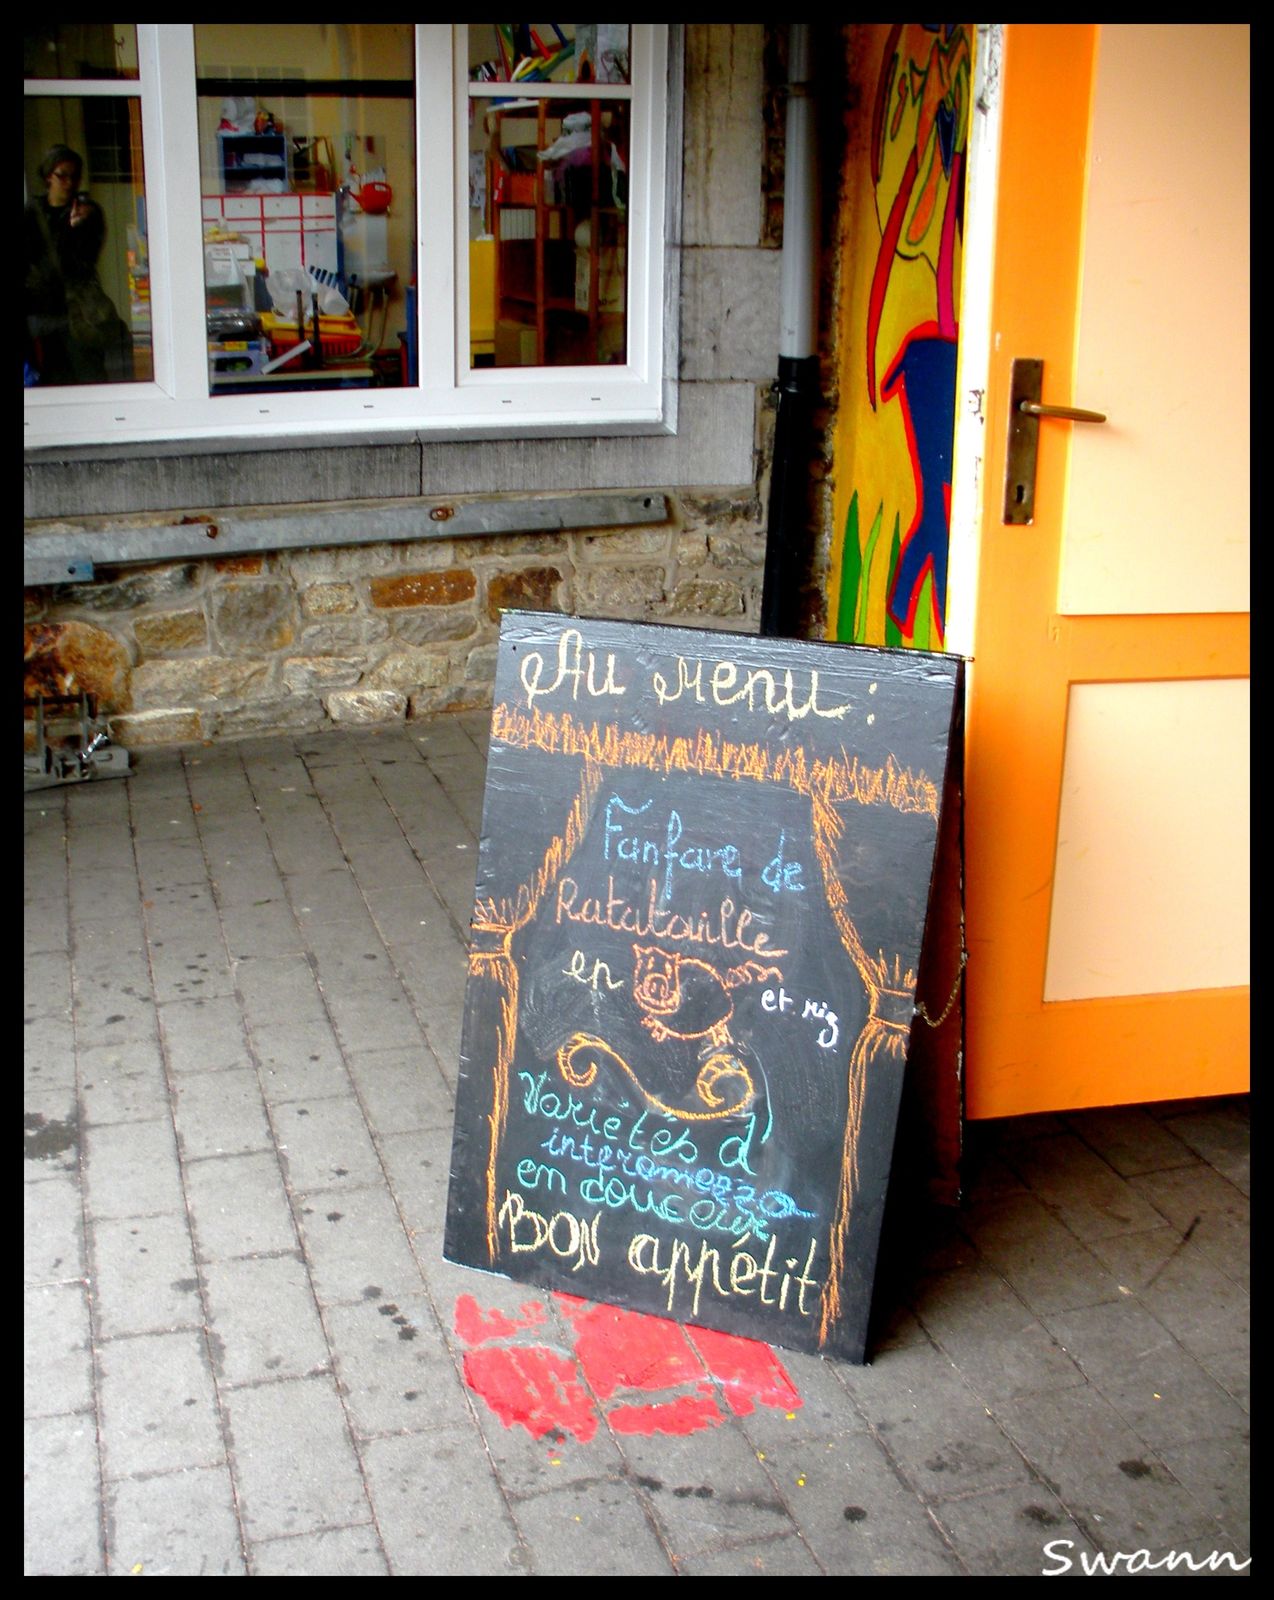 Au Menu :
Fanfare de
Ratatouille
en
et riz
Variétés d'
interomezzo
en douceur
BON appétit
Swann